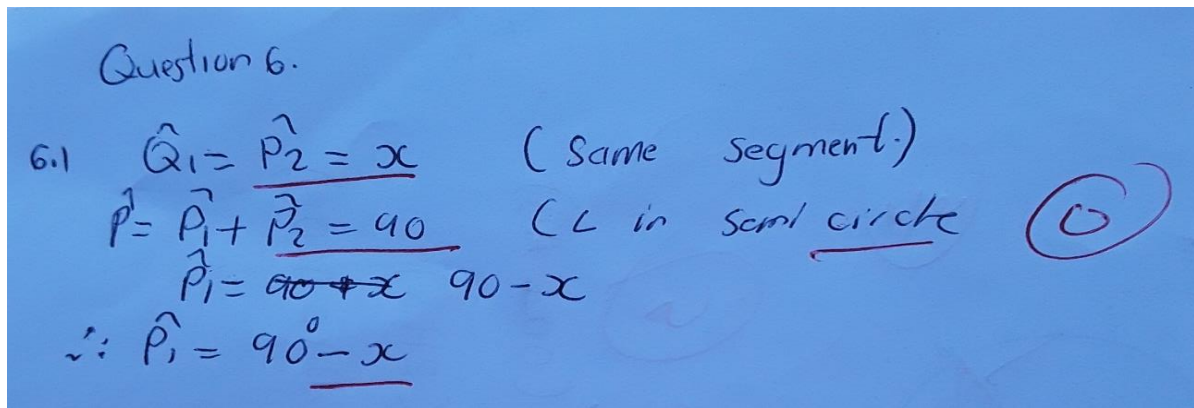 Question 6.
6.1 Q̂1 = P̂2 = x (Same segment.)
P̂ = P̂1 + P̂2 = 90 (∠ in semi circle 0
P̂1 = 90 + x 90 - x
∴ P̂1 = 90° - x